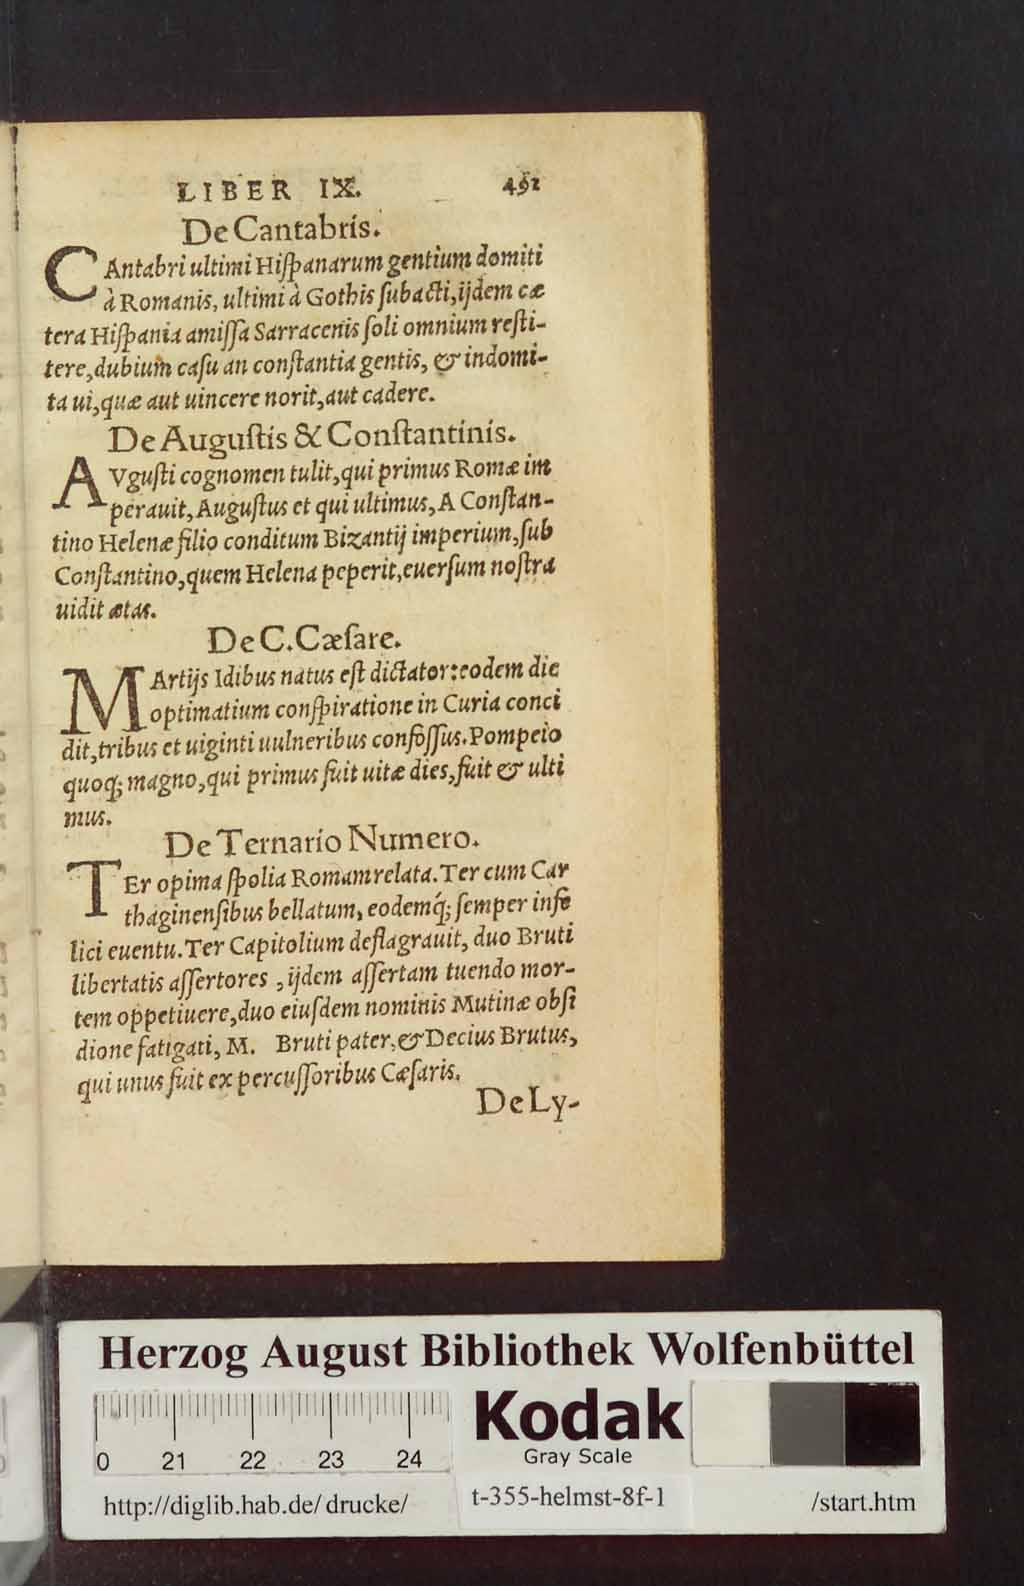 LIBER IX. 491
De Cantabris.
CAntabri ultimi Hiſpanarum gentium domiti
à Romanis, ultimi à Gothis ſubacti, ijdem cæ
tera Hiſpania amiſſa Sarracenis ſoli omnium reſti-
tere, dubium caſu an conſtantia gentis, & indomi-
ta ui, quæ aut uincere norit, aut cadere.
De Auguſtis & Conſtantinis.
AVguſti cognomen tulit, qui primus Romæ im
perauit, Auguſtus et qui ultimus, A Conſtan-
tino Helenæ filio conditum Bizantij imperium, ſub
Conſtantino, quem Helena peperit, euerſum noſtra
uidit ætas.
De C. Cæſare.
MArtijs Idibus natus eſt dictator: eodem die
optimatium conſpiratione in Curia conci
dit, tribus et uiginti uulneribus confoſſus. Pompeio
quoq; magno, qui primus fuit uitæ dies, fuit & ulti
mus.
De Ternario Numero.
TEr opima ſpolia Romam relata. Ter cum Car
thaginenſibus bellatum, eodemq́; ſemper infe
lici euentu. Ter Capitolium deflagrauit, duo Bruti
libertatis aſſertores, ijdem aſſertam tuendo mor-
tem oppetiuere, duo eiuſdem nominis Mutinæ obſi
dione fatigati, M. Bruti pater, & Decius Brutus,
qui unus fuit ex percuſſoribus Cæſaris.
De Ly-
Herzog August Bibliothek Wolfenbüttel
0 21 22 23 24
Kodak
Gray Scale
http://diglib.hab.de/drucke/ t-355-helmst-8f-1 /start.htm